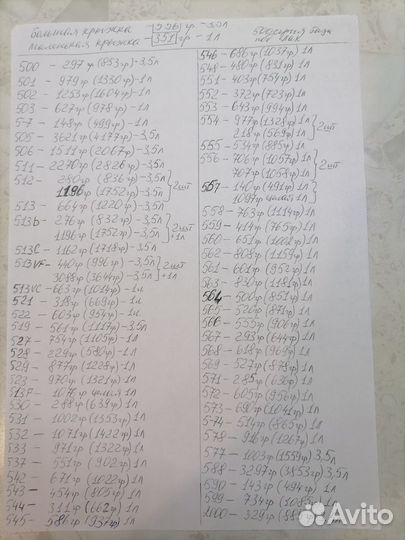 большая кружка - 556гр. - 3,5л
маленькая кружка - 351гр - 1л
бесцветная база
500 - 297гр (853гр) - 3,5л
501 - 979гр (1330гр) - 1л
502 - 1253гр (1604гр) - 1л
503 - 627гр (978гр) - 1л
5-7 - 148гр (499гр) - 1л
505 - 3621гр (4177гр) - 3,5л
506 - 1511гр (2067гр) - 3,5л
511 - 2270гр (2826гр) - 3,5л
512 - 280гр (836гр) - 3,5л
1196гр (1752гр) - 3,5л } 2шт
513 - 664гр (1220гр) - 3,5л
513b - 276гр (832гр) - 3,5л
1196гр (1752гр) - 3,5л } 2шт
+1л
513C - 1162гр (1718гр) - 3,5л
513VF - 440гр (996гр) - 3,5л
3088гр (3644гр) - 3,5л } 2шт
+1л
513VC - 663гр (1014гр) - 1л
521 - 318гр (669гр) - 1л
522 - 603гр (954гр) - 1л
519 - 561гр (1117гр) - 3,5л
527 - 754гр (1105гр) - 1л
528 - 229гр (580гр) - 1л
529 - 877гр (1228гр) - 1л
523 - 970гр (1321гр) 1л
513F - 1076гр 1л
530 - 288гр (639гр) 1л
531 - 1002гр (1353гр) 1л
532 - 1071гр (1422гр) 1л
533 - 971гр (1322гр) 1л
537 - 551гр (902гр) 1л
542 - 671гр (1022гр) 1л
543 - 454гр (805гр) 1л
544 - 311гр (662гр) 1л
545 - 586гр (937гр) 1л
546 - 686гр (1037гр) 1л
548 - 480гр (831гр) 1л
551 - 403гр (754гр) 1л
552 - 372гр (723гр) 1л
553 - 643гр (994гр) 1л
554 - 977гр (1328гр) 1л
218гр (569гр) 1л } 2шт
555 - 534гр (885гр) 1л
556 - 706гр (1057гр) 1л
707гр (1058гр) 1л } 2шт
557 - 140гр (491гр) 1л
1097гр 1л } 2шт
558 - 763гр (1114гр) 1л
559 - 414гр (765гр) 1л
560 - 651гр (1002гр) 1л
562 - 808гр (1159гр) 1л
561 - 601гр (952гр) 1л
563 - 830гр (1181гр) 1л
564 - 500гр (851гр) 1л
565 - 520гр (871гр) 1л
566 - 555гр (906гр) 1л
567 - 293гр (644гр) 1л
568 - 618гр (969гр) 1л
569 - 527гр (878гр) 1л
571 - 285гр (636гр) 1л
572 - 605гр (956гр) 1л
573 - 690гр (1041гр) 1л
574 - 514гр (865гр) 1л
578 - 916гр (1267гр) 1л
577 - 1003гр (1559гр) 3,5л
588 - 3297гр (3853гр) 3,5л
590 - 143гр (494гр) 1л
599 - 734гр (1085гр) 1л
1100 - 329гр
Avito